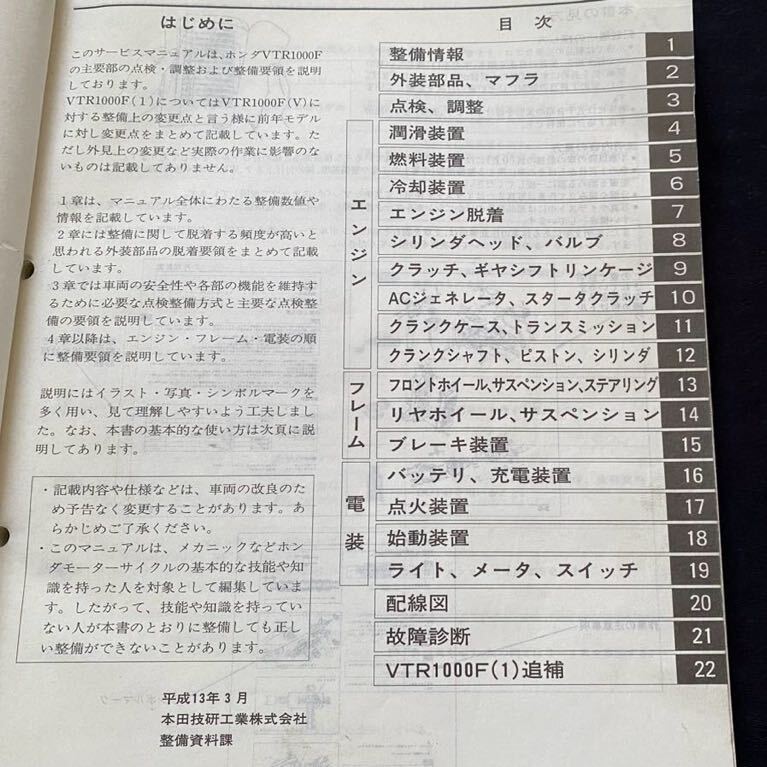 はじめに
このサービスマニュアルは、ホンダVTR1000F
の主要部の点検・調整および整備要領を説明
しております。
VTR1000F(1)についてはVTR1000F(V)に
対する整備上の変更点と言う様に前年モデル
に対し変更点をまとめて記載しています。た
だし外見上の変更など実際の作業に影響のな
いものは記載してありません。
1章は、マニュアル全体にわたる整備数値や
情報を記載しています。
2章には整備に関して脱着する頻度が高いと
思われる外装部品の脱着要領をまとめて記載
しています。
3章では車両の安全性や各部の機能を維持す
るために必要な点検整備方式と主要な点検整
備の要領を説明しています。
4章以降は、エンジン・フレーム・電装の順
に整備要領を説明しています。
説明にはイラスト・写真・シンボルマークを
多く用い、見て理解しやすいよう工夫しまし
た。なお、本書の基本的な使い方は次頁に説
明してあります。
・記載内容や仕様などは、車両の改良のた
め予告なく変更することがあります。あ
らかじめご了承ください。
・このマニュアルは、メカニックなどホン
ダモーターサイクルの基本的な技能や知
識を持った人を対象として編集していま
す。したがって、技能や知識を持ってい
ない人が本書のとおりに整備しても正し
い整備ができないことがあります。
平成13年3月
本田技研工業株式会社
整備資料課
目次
整備情報 1
外装部品、マフラ 2
点検、調整 3
エンジン
潤滑装置 4
燃料装置 5
冷却装置 6
エンジン脱着 7
シリンダヘッド、バルブ 8
クラッチ、ギヤシフトリンケージ 9
ACジェネレータ、スタータクラッチ 10
クランクケース、トランスミッション 11
クランクシャフト、ピストン、シリンダ 12
フレーム
フロントホイール、サスペンション、ステアリング 13
リヤホイール、サスペンション 14
ブレーキ装置 15
電装
バッテリ、充電装置 16
点火装置 17
始動装置 18
ライト、メータ、スイッチ 19
配線図 20
故障診断 21
VTR1000F(1)追補 22